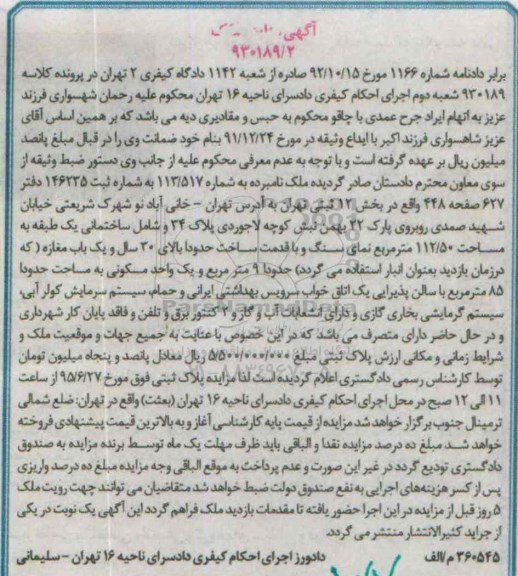 آگهی مزایده
۹۳۰۱۸۹/۲
برابر دادنامه شماره ۱۱۶۶ مورخ ۹۲/۱۰/۱۵ صادره از شعبه ۱۱۴۲ دادگاه کیفری ۲ تهران در پرونده کلاسه
۹۳۰۱۸۹ شعبه دوم اجرای احکام کیفری دادسرای ناحیه ۱۶ تهران محکوم علیه رحمان شهسواری فرزند
عزیز به اتهام ایراد جرح عمدی با چاقو محکوم به حبس و مقادیری دیه می باشد که بر همین اساس آقای
عزیز شاهسواری فرزند اکبر با ایداع وثیقه در مورخ ۹۱/۱۲/۲۴ بنام خود ضمانت وی را در قبال مبلغ پانصد
میلیون ریال بر عهده گرفته است و با توجه به عدم معرفی محکوم علیه از جانب وی دستور ضبط وثیقه از
سوی معاون محترم دادستان صادر گردیده ملک نامبرده به شماره ۱۱۳/۵۱۷ به شماره ثبت ۱۴۶۲۳۵ دفتر
۶۲۷ صفحه ۴۴۸ واقع در بخش ۱۲ ثبتی تهران به آدرس تهران - خانی آباد نو شهرک شریعتی خیابان
شهید صمدی روبروی پارک ۲۲ بهمن نبش کوچه لاجوردی پلاک ۳۴ و شامل ساختمانی یک طبقه به
مساحت ۱۱۲/۵۰ مترمربع نمای سنگ و با قدمت ساخت حدودا بالای ۳۰ سال و یک باب مغازه ( که
درزمان بازدید بعنوان انبار استفاده می گردد) حدودا ۹ متر مربع و یک واحد مسکونی به مساحت حدودا
۸۵ مترمربع با سالن پذیرایی یک اتاق خواب سرویس بهداشتی ایرانی و حمام، سیستم سرمایش کولر آبی،
سیستم گرمایشی بخاری گازی و دارای انشعابات آب و گاز و ۲ کنتور برق و تلفن و فاقد پایان کار شهرداری
و در حال حاضر دارای متصرف می باشد که در این خصوص با عنایت به جمیع جهات و موقعیت ملک و
شرایط زمانی و مکانی ارزش پلاک ثبتی مبلغ ۵/۵۰۰/۰۰۰/۰۰۰ ریال معادل پانصد و پنجاه میلیون تومان
توسط کارشناس رسمی دادگستری اعلام گردیده است لذا مزایده پلاک ثبتی فوق مورخ ۹۵/۶/۲۷ از ساعت
۱۱ الی ۱۲ صبح در محل اجرای احکام کیفری دادسرای ناحیه ۱۶ تهران (بعثت) واقع در تهران: ضلع شمالی
ترمینال جنوب برگزار خواهد شد مزایده از قیمت پایه کارشناسی آغاز و به بالاترین قیمت پیشنهادی فروخته
خواهد شد مبلغ ده درصد مزایده نقدا و الباقی باید ظرف مهلت یک ماه توسط برنده مزایده به صندوق
دادگستری تودیع گردد در غیر این صورت و عدم پرداخت به موقع الباقی وجه مزایده مبلغ ده درصد واریزی
پس از کسر هزینه‌های اجرایی به نفع صندوق دولت ضبط خواهد شد متقاضیان می توانند جهت رویت ملک
۵ روز قبل از مزایده در این اجرا حضور یافته تا مقدمات بازدید ملک فراهم گردد این آگهی یک نوبت در یکی
از جراید کثیرالانتشار منتشر می گردد.
۳۶۰۵۴۵ م/الف دادورز اجرای احکام کیفری دادسرای ناحیه ۱۶ تهران - سلیمانی